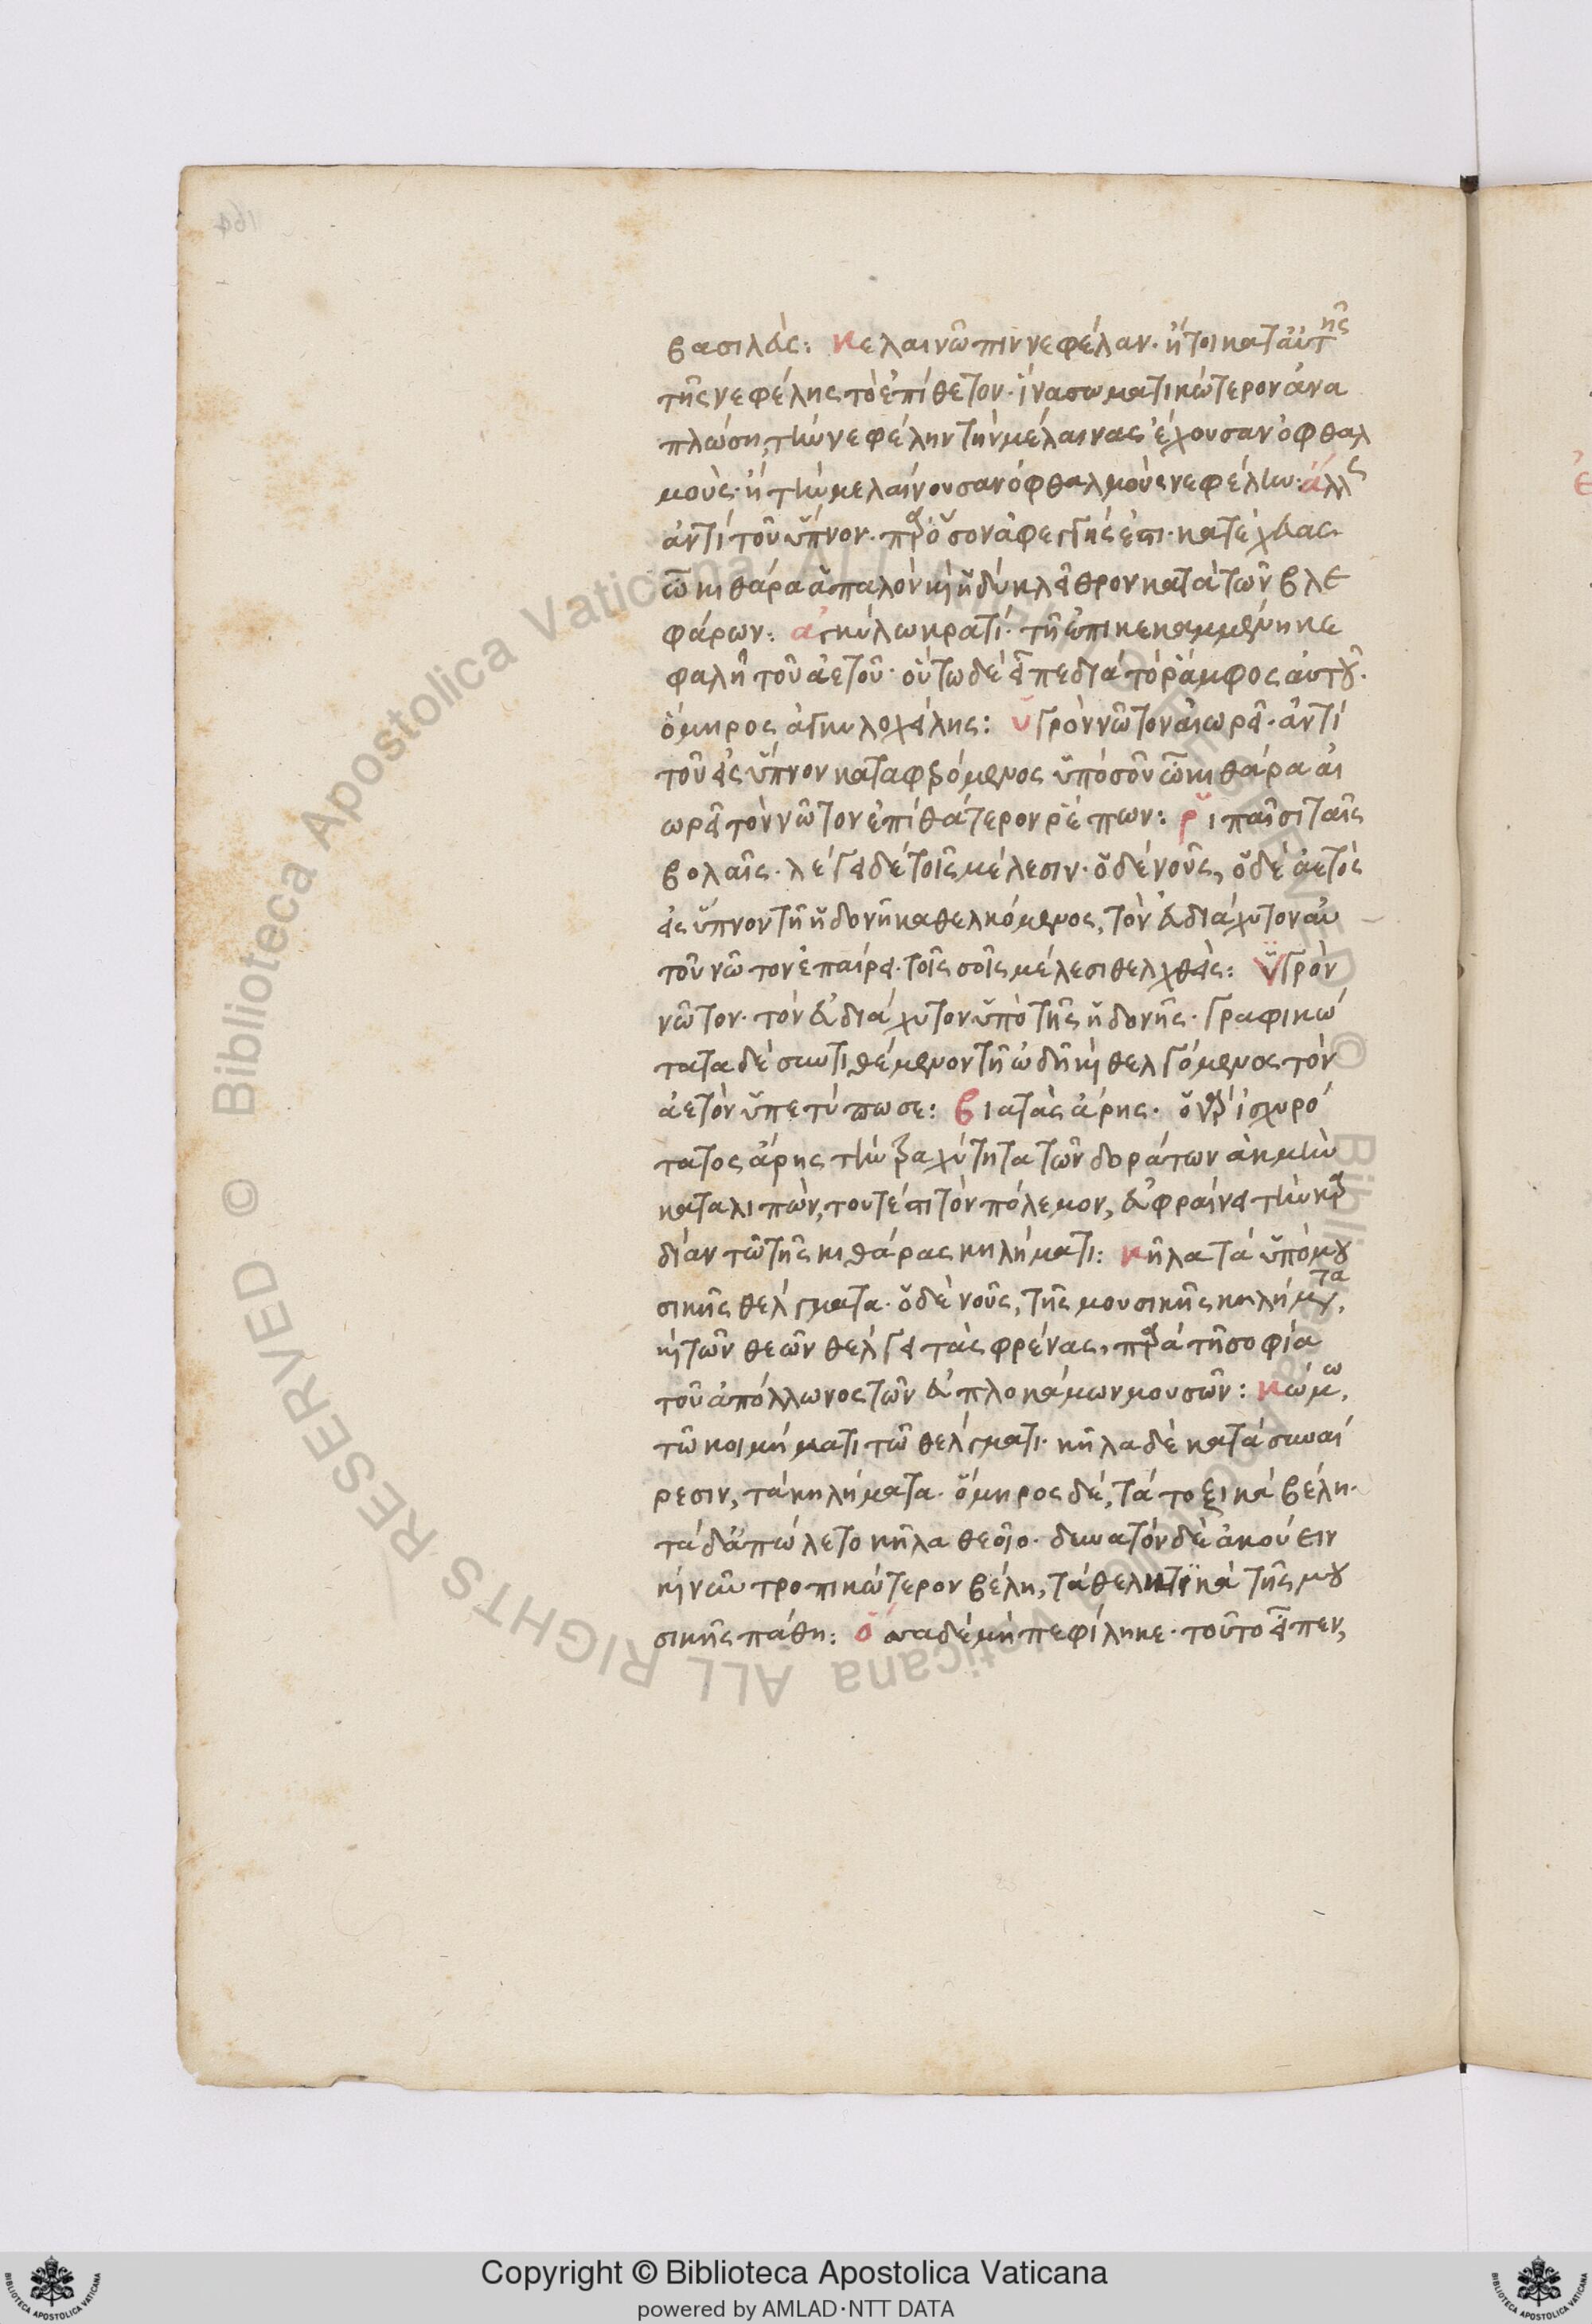 βασιλεύς: κελαινῶπιν νεφέλαν· ἤτοι κατ' αὐτῆς
τῆς νεφέλης τὸ ἐπίθετον· ἵνα σωματικώτερον ἀνα
πλώσῃ, τὴν νεφέλην τὴν μελαίνας ἔχουσαν ὀφθαλ
μούς· ἢ τὴν μελαίνουσαν ὀφθαλμοὺς νεφέλην: ἄλλως
ἀντὶ τοῦ ὕπνον· παρ' ὅσον ἀφεγγής ἐστι· κατέχευας
ὦ κιθάρα ἁπαλὸν καὶ ἡδὺ κλεῖθρον κατὰ τῶν βλε
φάρων: ἀγκύλῳ κρατί· τῇ ἐπικεκαμμένῃ κε
φαλῇ τοῦ ἀετοῦ· οὕτω δὲ εἶπε διὰ τὸ ῥάμφος αὐτοῦ·
ὅμηρος ἀγκυλοχείλης: ὑγρὸν νῶτον αἰωρεῖ· ἀντὶ
τοῦ εἰς ὕπνον καταφερόμενος ὑπὸ σοῦ ὦ κιθάρα αἰ
ωρεῖ τὸν νῶτον ἐπὶ θάτερον ῥέπων: ῥιπαῖσι ταῖς
βολαῖς· λέγει δὲ τοῖς μέλεσιν· ὁ δὲ νοῦς, ὁ δὲ ἀετὸς
εἰς ὕπνον τῇ ἡδονῇ καθελκόμενος, τὸν εὐδιάχυτον αὐ
τοῦ νῶτον ἐπαίρει· τοῖς σοῖς μέλεσι θελχθείς: ὑγρὸν
νῶτον· τὸν εὐδιάχυτον ὑπὸ τῆς ἡδονῆς· γραφικώ
τατα δὲ συντιθέμενον τῇ ᾠδῇ καὶ θελγόμενος τὸν
ἀετὸν ὑπετύπωσε: βιατὰς ἄρης· ὁ γὰρ ἰσχυρό
τατος ἄρης τὴν τραχύτητα τῶν δοράτων ἀκμὴν
καταλιπών, τουτέστι τὸν πόλεμον, εὐφραίνει τὴν καρ
δίαν τῷ τῆς κιθάρας κηλήματι: κῆλα τὰ ὑπὸ μου
σικῆς θέλγματα· ὁ δὲ νοῦς, τῆς μουσικῆς κηλήματα,
καὶ τῶν θεῶν θέλγει τὰς φρένας, παρὰ τῇ σοφίᾳ
τοῦ ἀπόλλωνος τῶν εὐπλοκάμων μουσῶν: κώμω,
τῷ κοιμήματι τῷ θέλγματι· κῆλα δὲ κατὰ συναί
ρεσιν, τὰ κηλήματα· ὅμηρος δέ, τὰ τοξικὰ βέλη·
τὰ δ' ἀπώλετο κῆλα θεοῖο· δυνατὸν δὲ ἀκούειν
καὶ νῦν τροπικώτερον βέλη, τὰ θελκτικὰ τῆς μου
σικῆς πάθη: ὅσσα δὲ μὴ πεφίληκε· τοῦτο εἶπεν,
164
Copyright © Biblioteca Apostolica Vaticana
powered by AMLAD·NTT DATA
Biblioteca Apostolica Vaticana ALL RIGHTS RESERVED ©